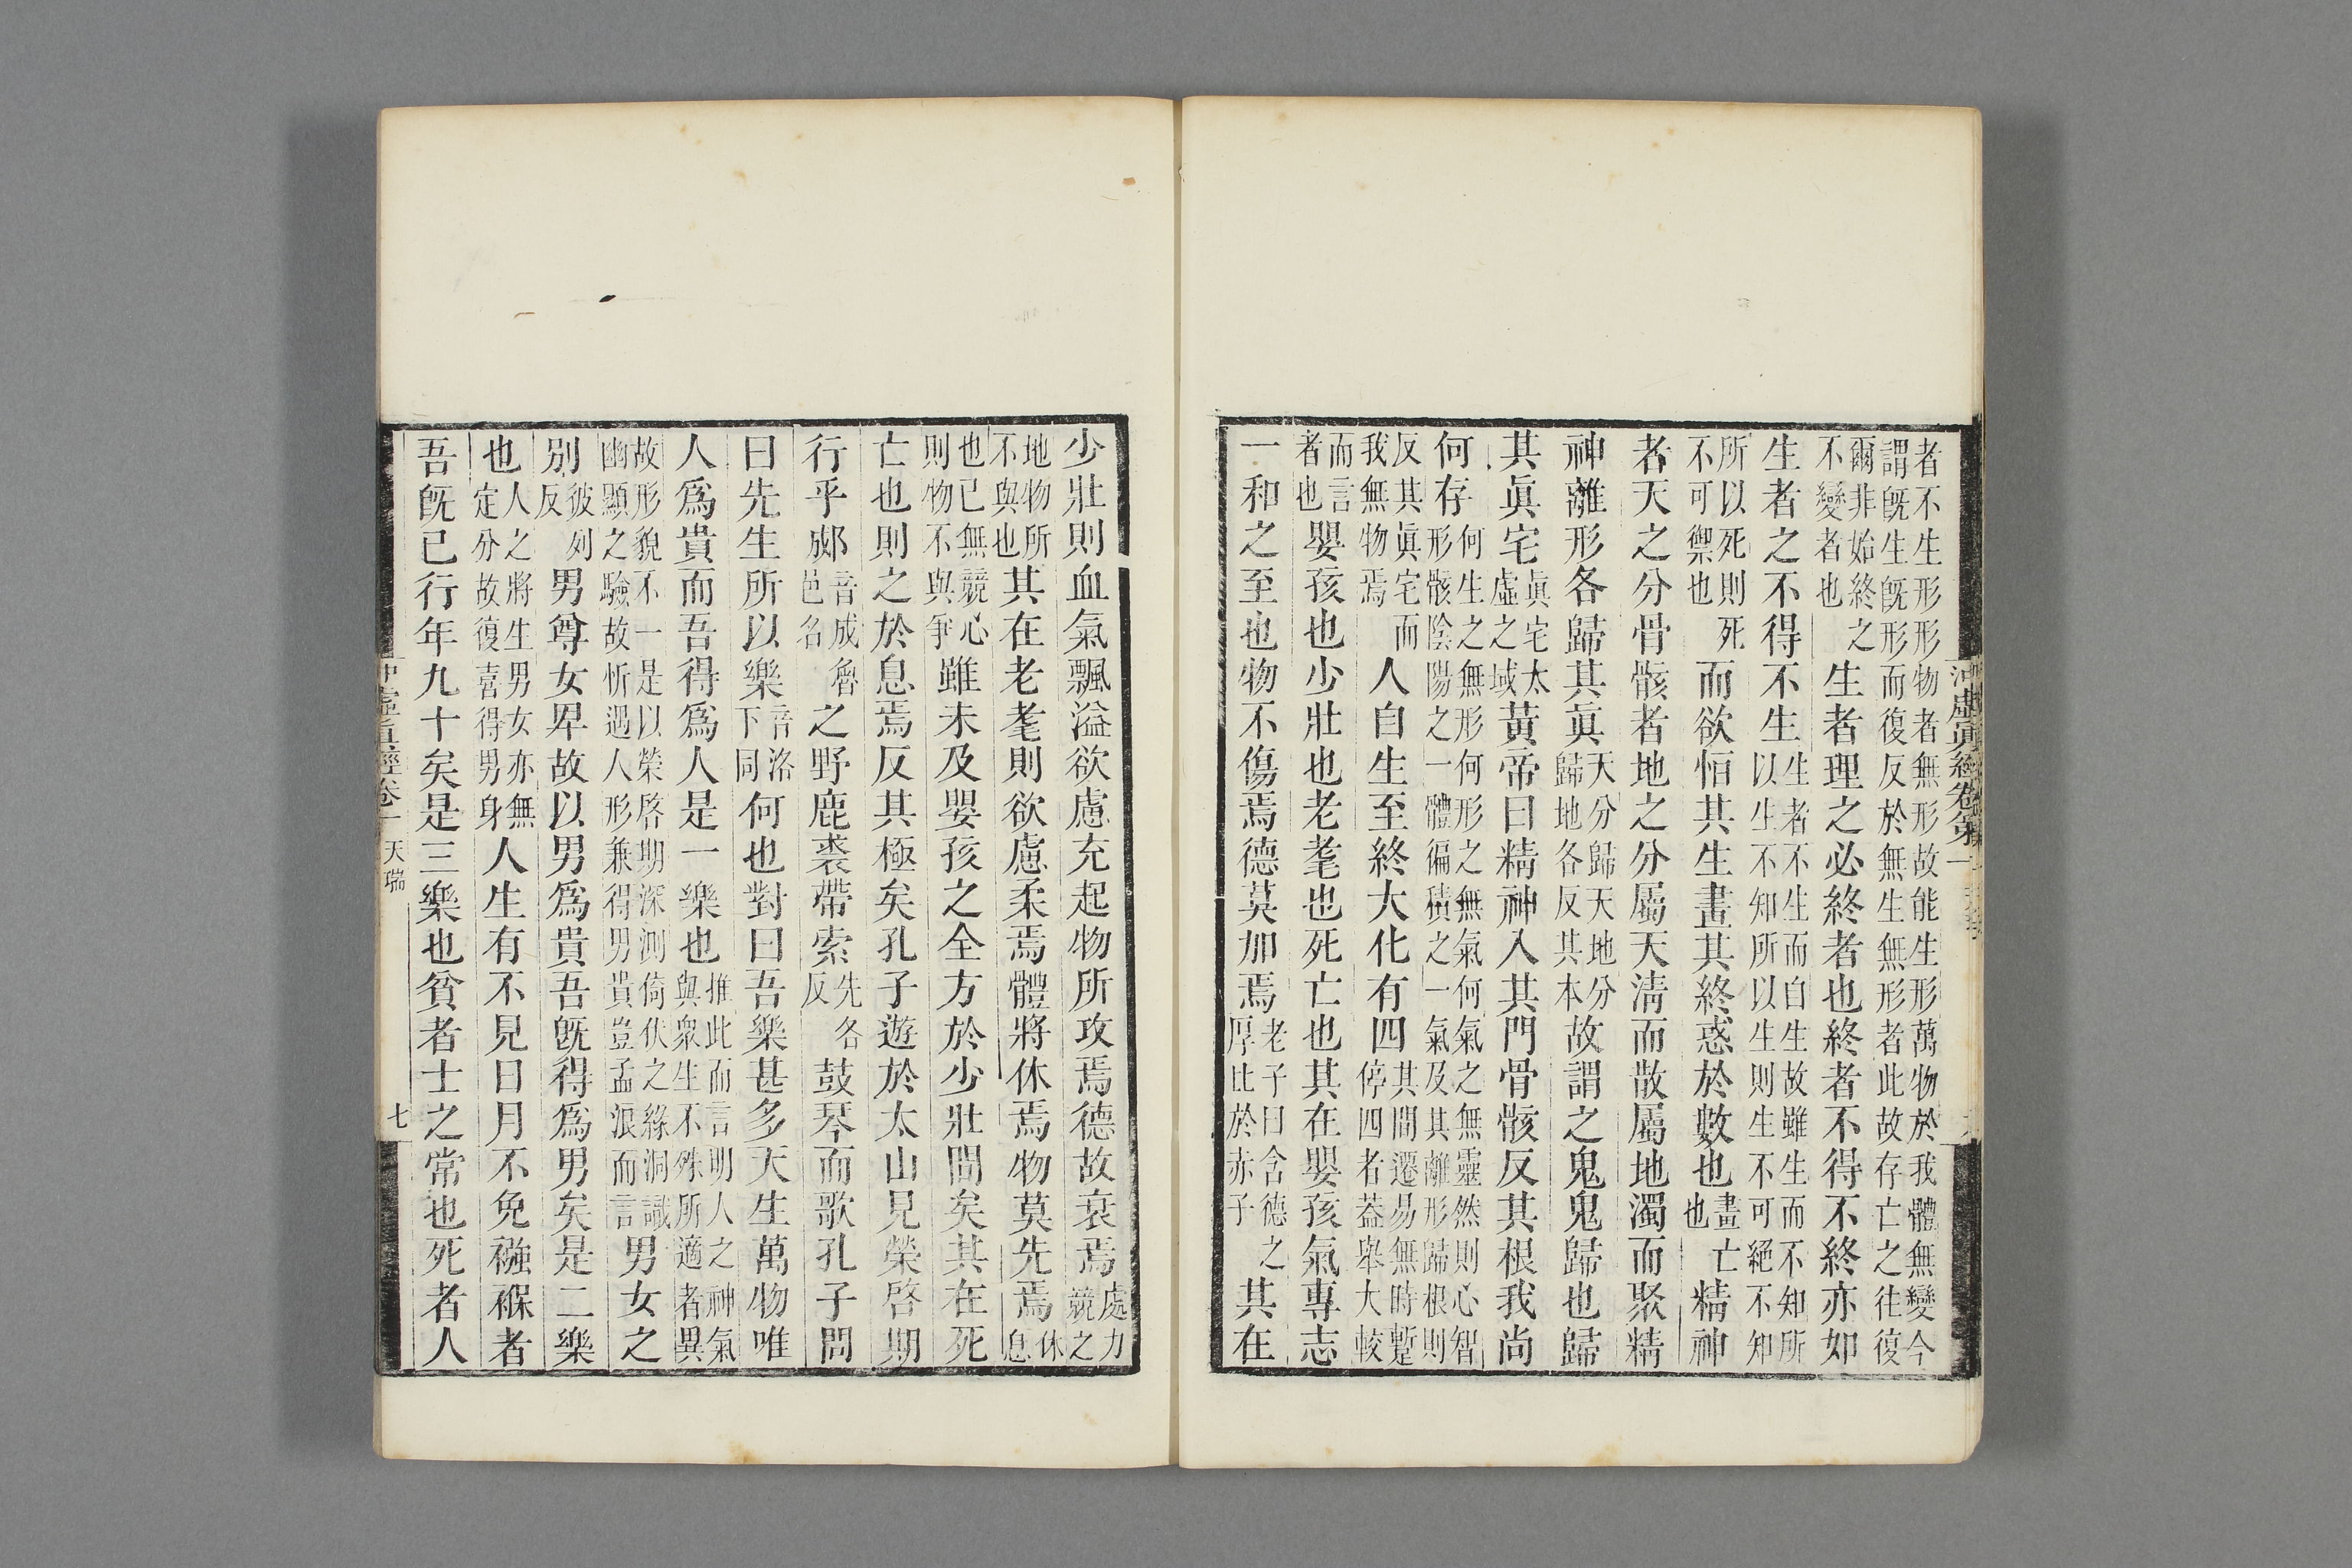 者不生形形物者無形故能生形萬物於我體無變今謂旣生旣形而復反於無生無形者此故存亡之往復
爾非始終之不變者也生者理之必終者也終者不得不終亦如
生者之不得不生生者不生而自生故雖生而不知所以生不知所以生則生不可絕不知
所以死則死不可禦也而欲恒其生畫其終惑於數也畫亡也精神
者天之分骨骸者地之分屬天淸而散屬地濁而聚精
神離形各歸其眞天分歸天地分歸地各反其本故謂之鬼鬼歸也歸
其眞宅眞宅太虛之域黃帝曰精神入其門骨骸反其根我尚
何存何生之無形何形之無氣何氣之無靈然則心智形骸陰陽之一體偏積之一氣及其離形歸根則
反其眞宅而我無物焉人自生至終大化有四其間遷易無時蹔停四者葢舉大較
而言者也嬰孩也少壯也老耄也死亡也其在嬰孩氣專志
一和之至也物不傷焉德莫加焉老子曰含德之厚比於赤子其在
少壯則血氣飄溢欲慮充起物所攻焉德故衰焉處力競之
地物所不與也其在老耄則欲慮柔焉體將休焉物莫先焉休息
也已無競心則物不與爭雖未及嬰孩之全方於少壯間矣其在死
亡也則之於息焉反其極矣孔子遊於太山見榮啓期
行乎郕音成魯邑名之野鹿裘帶索先各反鼓琴而歌孔子問
曰先生所以樂音洛下同何也對曰吾樂甚多天生萬物唯
人爲貴而吾得爲人是一樂也推此而言明人之神氣與衆生不殊所適者異
故形貌不一是以榮啓期深測倚伏之緣洞識幽顯之驗故忻遇人形兼得男貴豈孟浪而言男女之
別彼列反男尊女卑故以男爲貴吾旣得爲男矣是二樂
也人之將生男女亦無定分故復喜得男身人生有不見日月不免襁褓者
吾旣已行年九十矣是三樂也貧者士之常也死者人
冲虛眞經卷一 天瑞 七